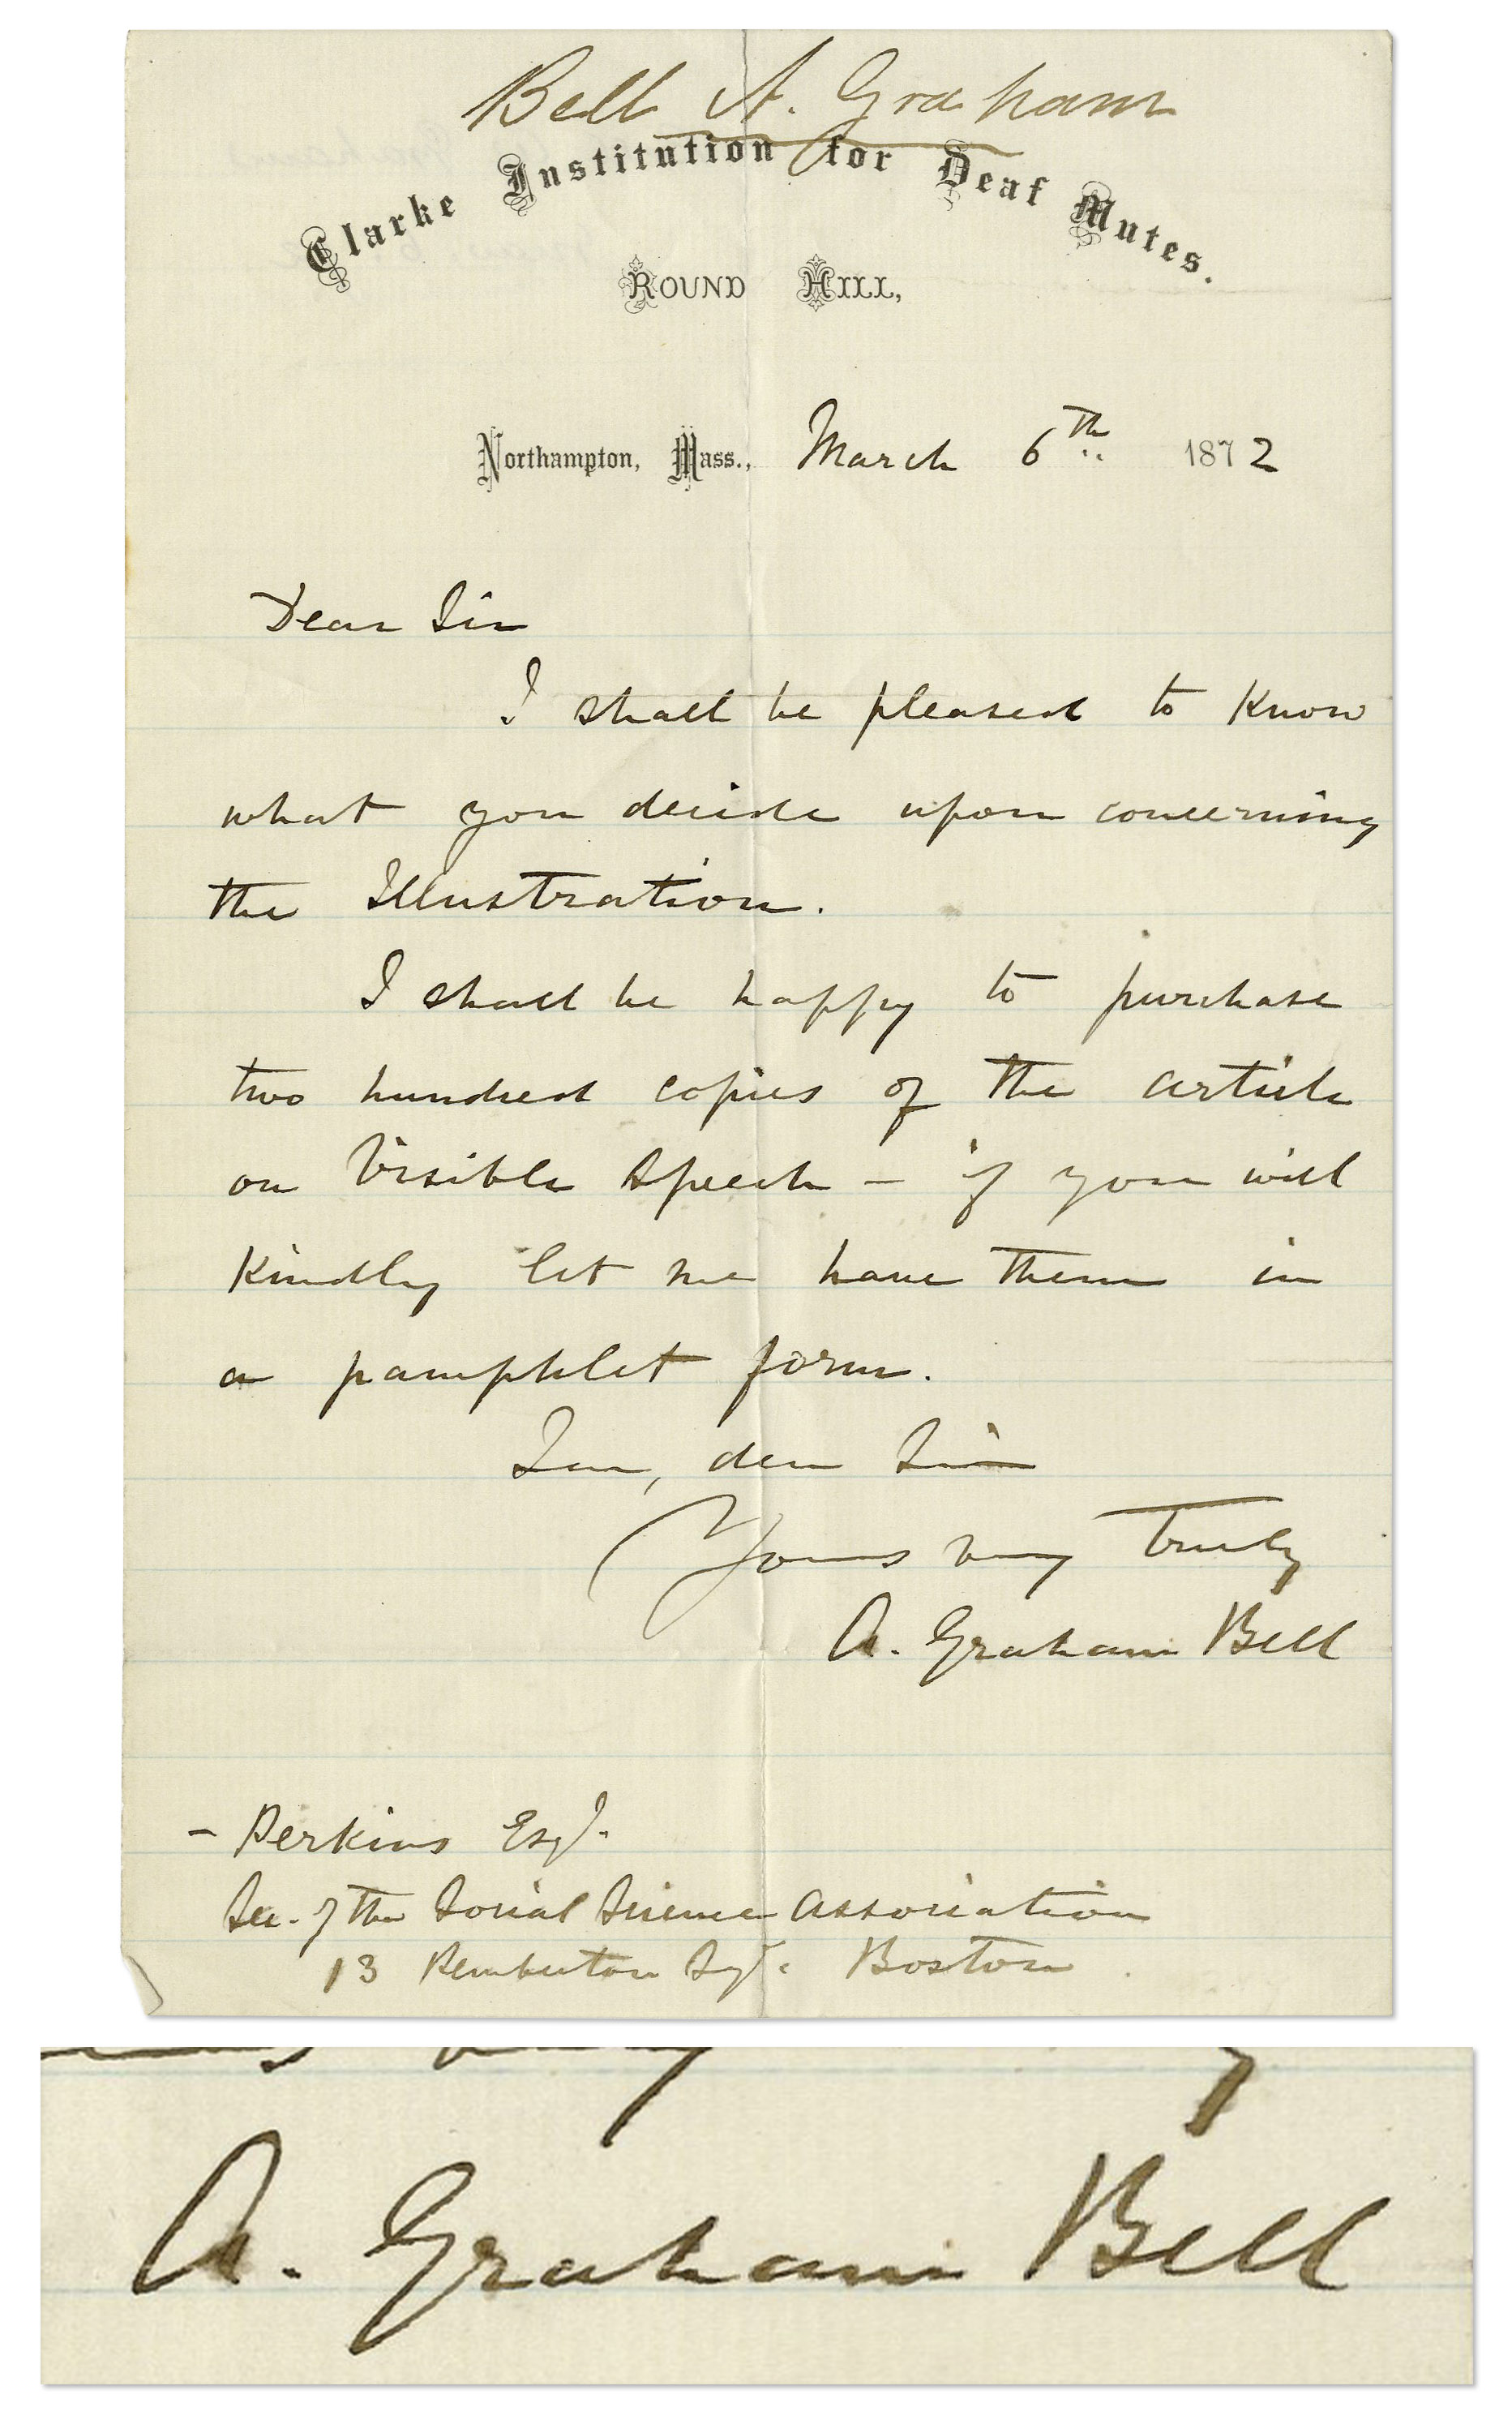 Bell A. Graham
Clarke Institution for Deaf Mutes.
Round Hill,
Northampton, Mass., March 6th 1872
Dear Sir
I shall be pleased to know
what you decide upon concerning
the Illustration.
I shall be happy to purchase
two hundred copies of the article
on Visible Speech – if you will
Kindly let me have them in
a pamphlet form.
I am, dear Sir
Yours very truly
A. Graham Bell
– Perkins Esq.
Sec. of the Social Science Association
13 Pemberton Sq. Boston
A. Graham Bell